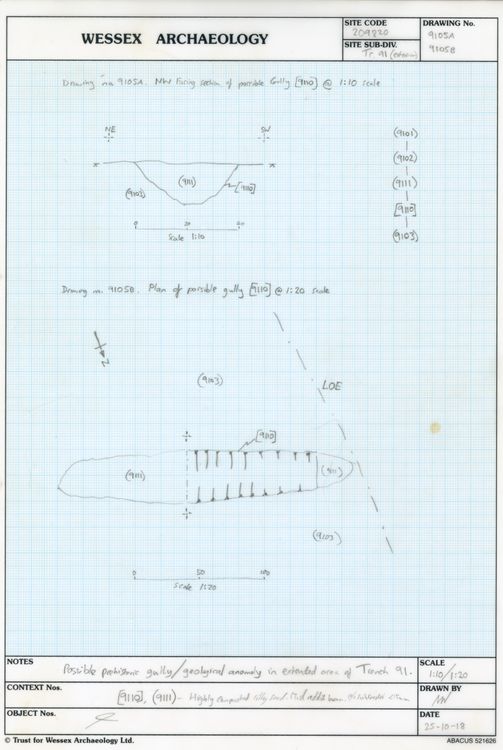 WESSEX ARCHAEOLOGY
SITE CODE
209220
SITE SUB-DIV.
Tr 91 (extension)
DRAWING No.
9105A
9105B
Drawing no. 9105A. NW Facing section of possible Gully [9110] @ 1:10 scale
NE
SW
(9103)
(9111)
[9110]
0 20 40
Scale 1:10
(9101)
(9102)
(9111)
[9110]
(9103)
Drawing no. 9105B. Plan of possible gully [9110] @ 1:20 scale
N
(9103)
LOE
[9110]
(9111)
(9111)
(9103)
0 50 100
Scale 1:20
NOTES
Possible prehistoric gully/geological anomaly in extented area of Trench 91.
SCALE
1:10/1:20
CONTEXT Nos.
[9110], (9111) - Highly compacted silty sand. Mid reddish brown.
DRAWN BY
OBJECT No.
DATE
25-10-18
© Trust for Wessex Archaeology Ltd.
ABACUS 521626